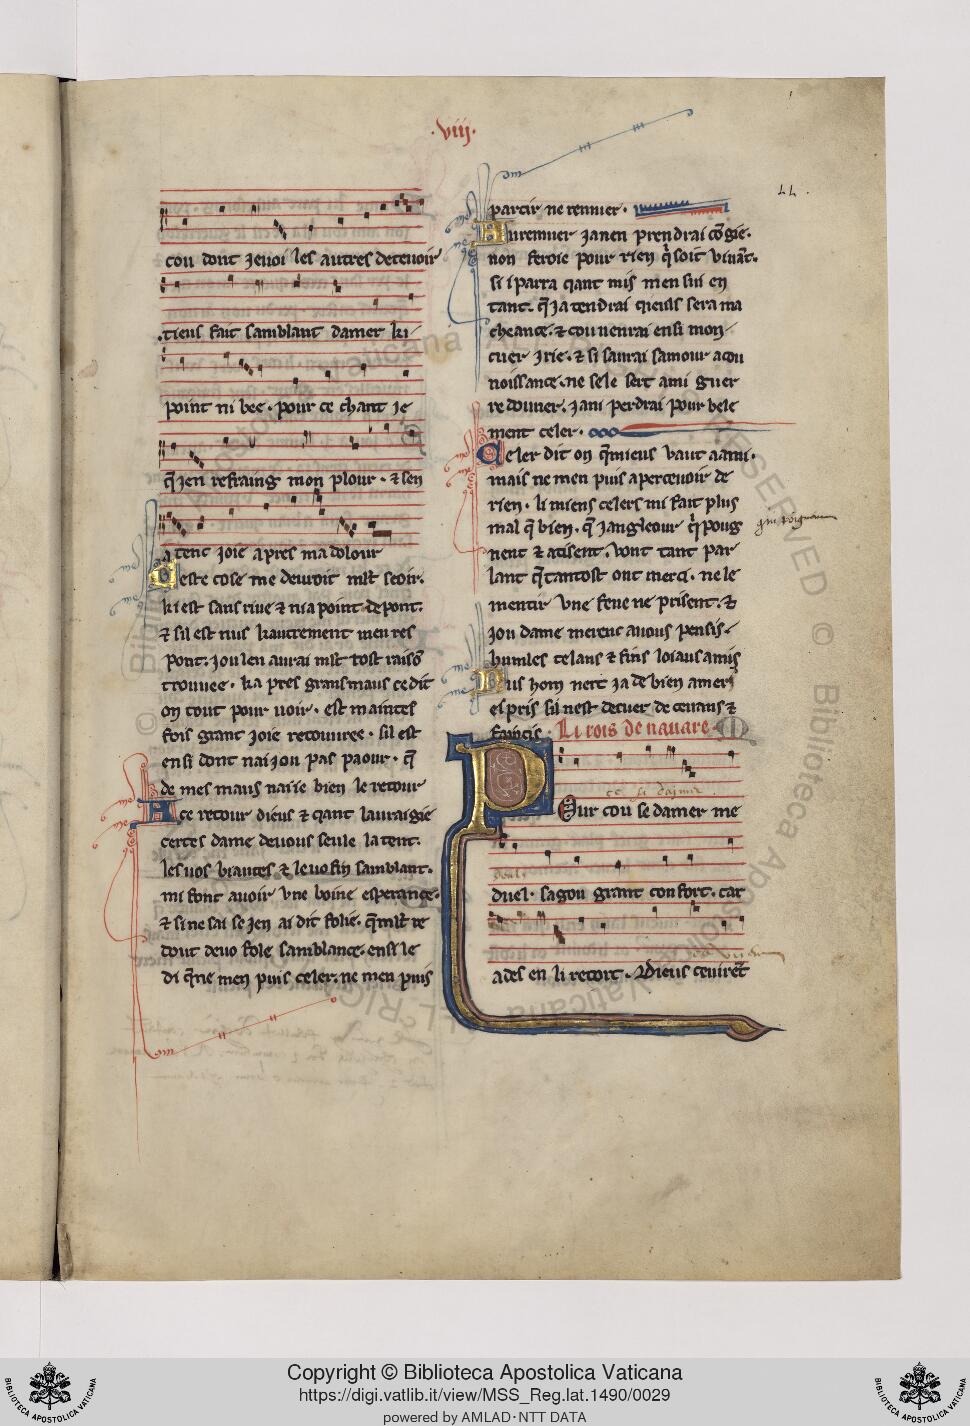 .viij.
LL.
cou dont jevoi les autres decevoir
tieus fait samblant damer ki
point ni bee. pour ce chant je
q̃ jen refraing mon plour. ⁊ sen
atent joie apres ma dolour
Ceste cose me devroit ml̃t seoir.
ki est sans rive ⁊ nia point de pont.
⁊ sil est nus kautrement men res
pont. jou len aurai ml̃t tost raisõ
trouvee. ka pres grans maus ce dit
on tout pour voir. est maintes
fois grant joie recouvree. sil est
ensi dont nai jou pas paour. q̃
de mes maus naiie bien le retour
A ce retour dieus ⁊ qant lauraigie
certes dame devous seule latent.
les vos biautes ⁊ le vo fin samblant.
mi font avoir une boine esperance.
⁊ si ne sai se jen ai dit folie. q̃ ml̃t re
dout de vo fole samblance. ensi le
di q̃ ne men puis celer. ne men puis
partir ne remuer.
Au remuer janen prendrai cõgie.
non feroie pour rien q̃ soit vivãt.
si i parra qant mis men sui en
tant. q̃ ja tendrai queuls sera ma
cheance. ⁊ couvenrai ensi mon
cuer irie. ⁊ si saurai samour a cou
noissance. ne se le sert ami guer
redouner. jani perdrai pour bele
ment celer.
Celer dit on q̃ mieus vaut aami.
mais ne men puis apercevoir de
rien. li miens celers mi fait plus
mal q̃ bien. q̃ jangleour q̃ poug
nent ⁊ atisent. vont tant par
lant q̃ tantost ont merci. ne le
mentir une feve ne prisent. ⁊
jou dame mercuc avous pensis.
humles celans ⁊ fins loiaus amis
Nus hom nert ja de bien ameri
espris sil nest decuer de cevans ⁊
faincis. Li rois de navare
ce si dainie
Pour cou se damer me
dueil
duel. sagou grant confort. car
ades en li recort. Dieus cevirẽt
Copyright © Biblioteca Apostolica Vaticana
https://digi.vatlib.it/view/MSS_Reg.lat.1490/0029
powered by AMLAD·NTT DATA
BIBLIOTECA APOSTOLICA VATICANA
BIBLIOTECA APOSTOLICA VATICANA